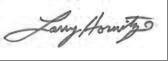 Larry Horwitz